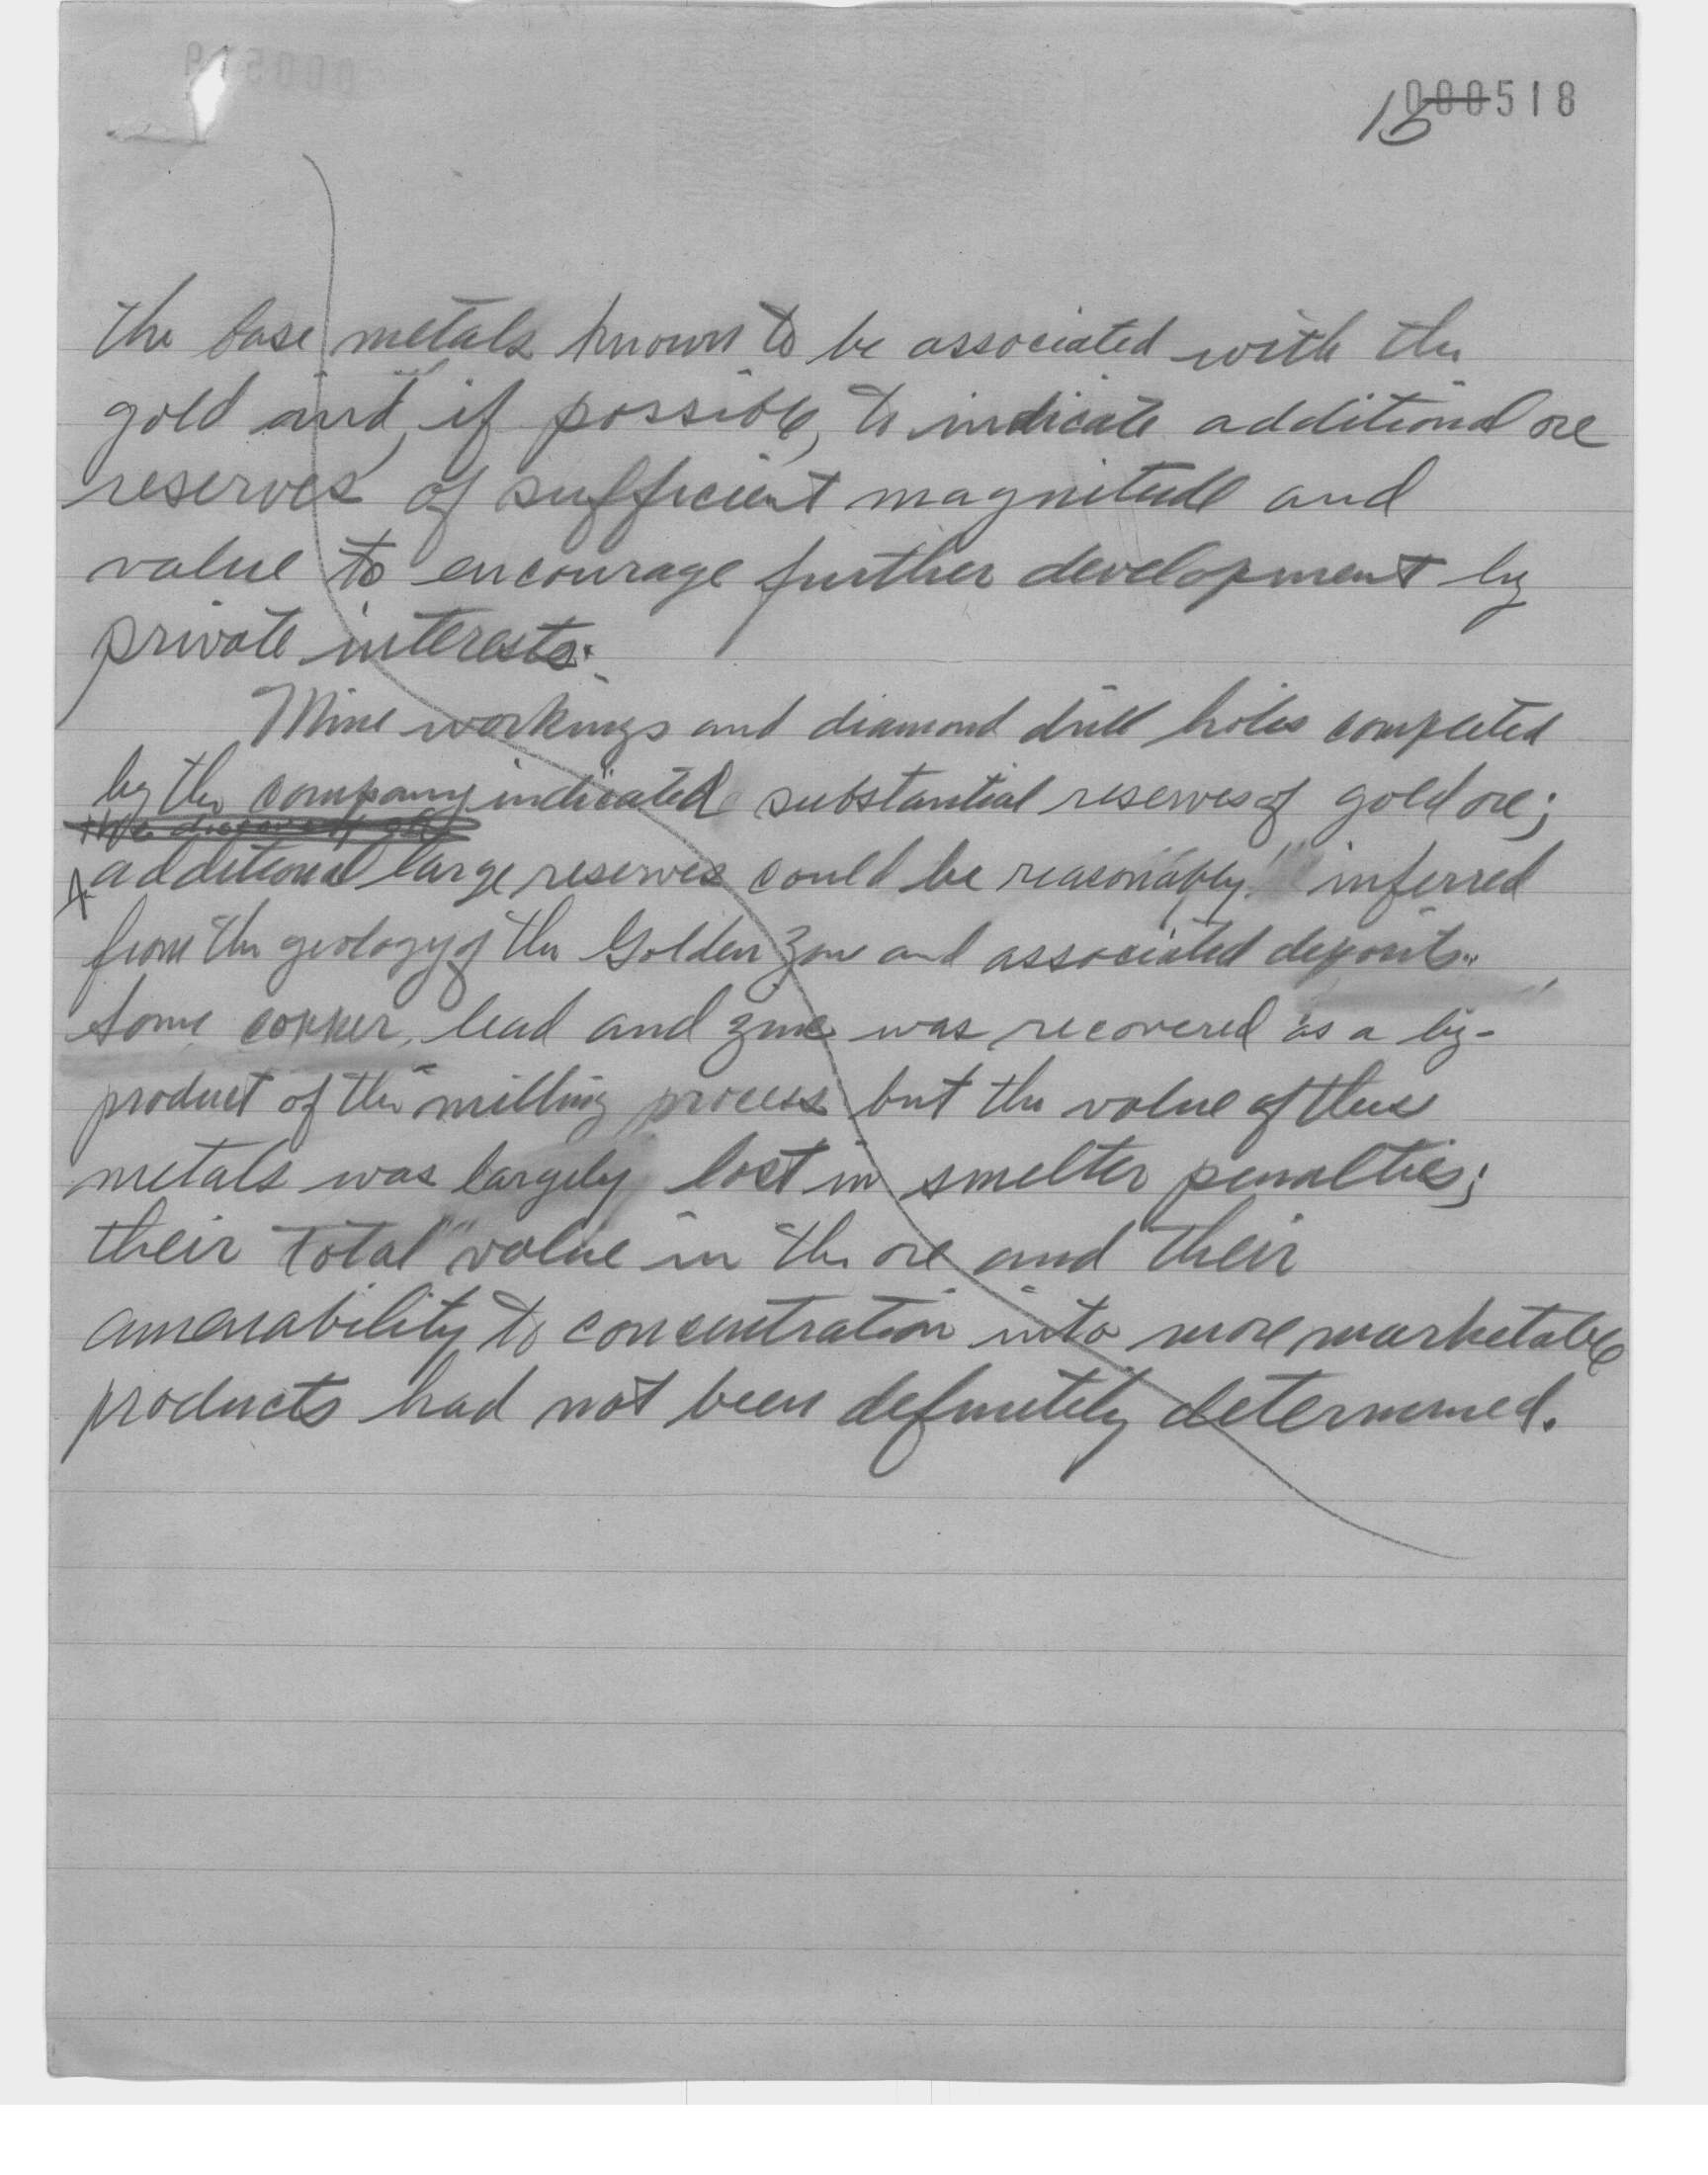 000518
15
the base metals known to be associated with the
gold and, if possible, to indicate additional ore
reserves of sufficient magnitude and
value to encourage further development by
private interests.
Mine workings and diamond drill holes completed
by the company indicated substantial reserves of gold ore;
additional large reserves could be reasonably inferred
from the geology of the Golden Zone and associated deposits.
Some copper, lead and zinc was recovered as a by-
product of the milling process but the value of these
metals was largely lost in smelter penalties;
their total value in the ore and their
amenability to concentration into more marketable
products had not been definitely determined.